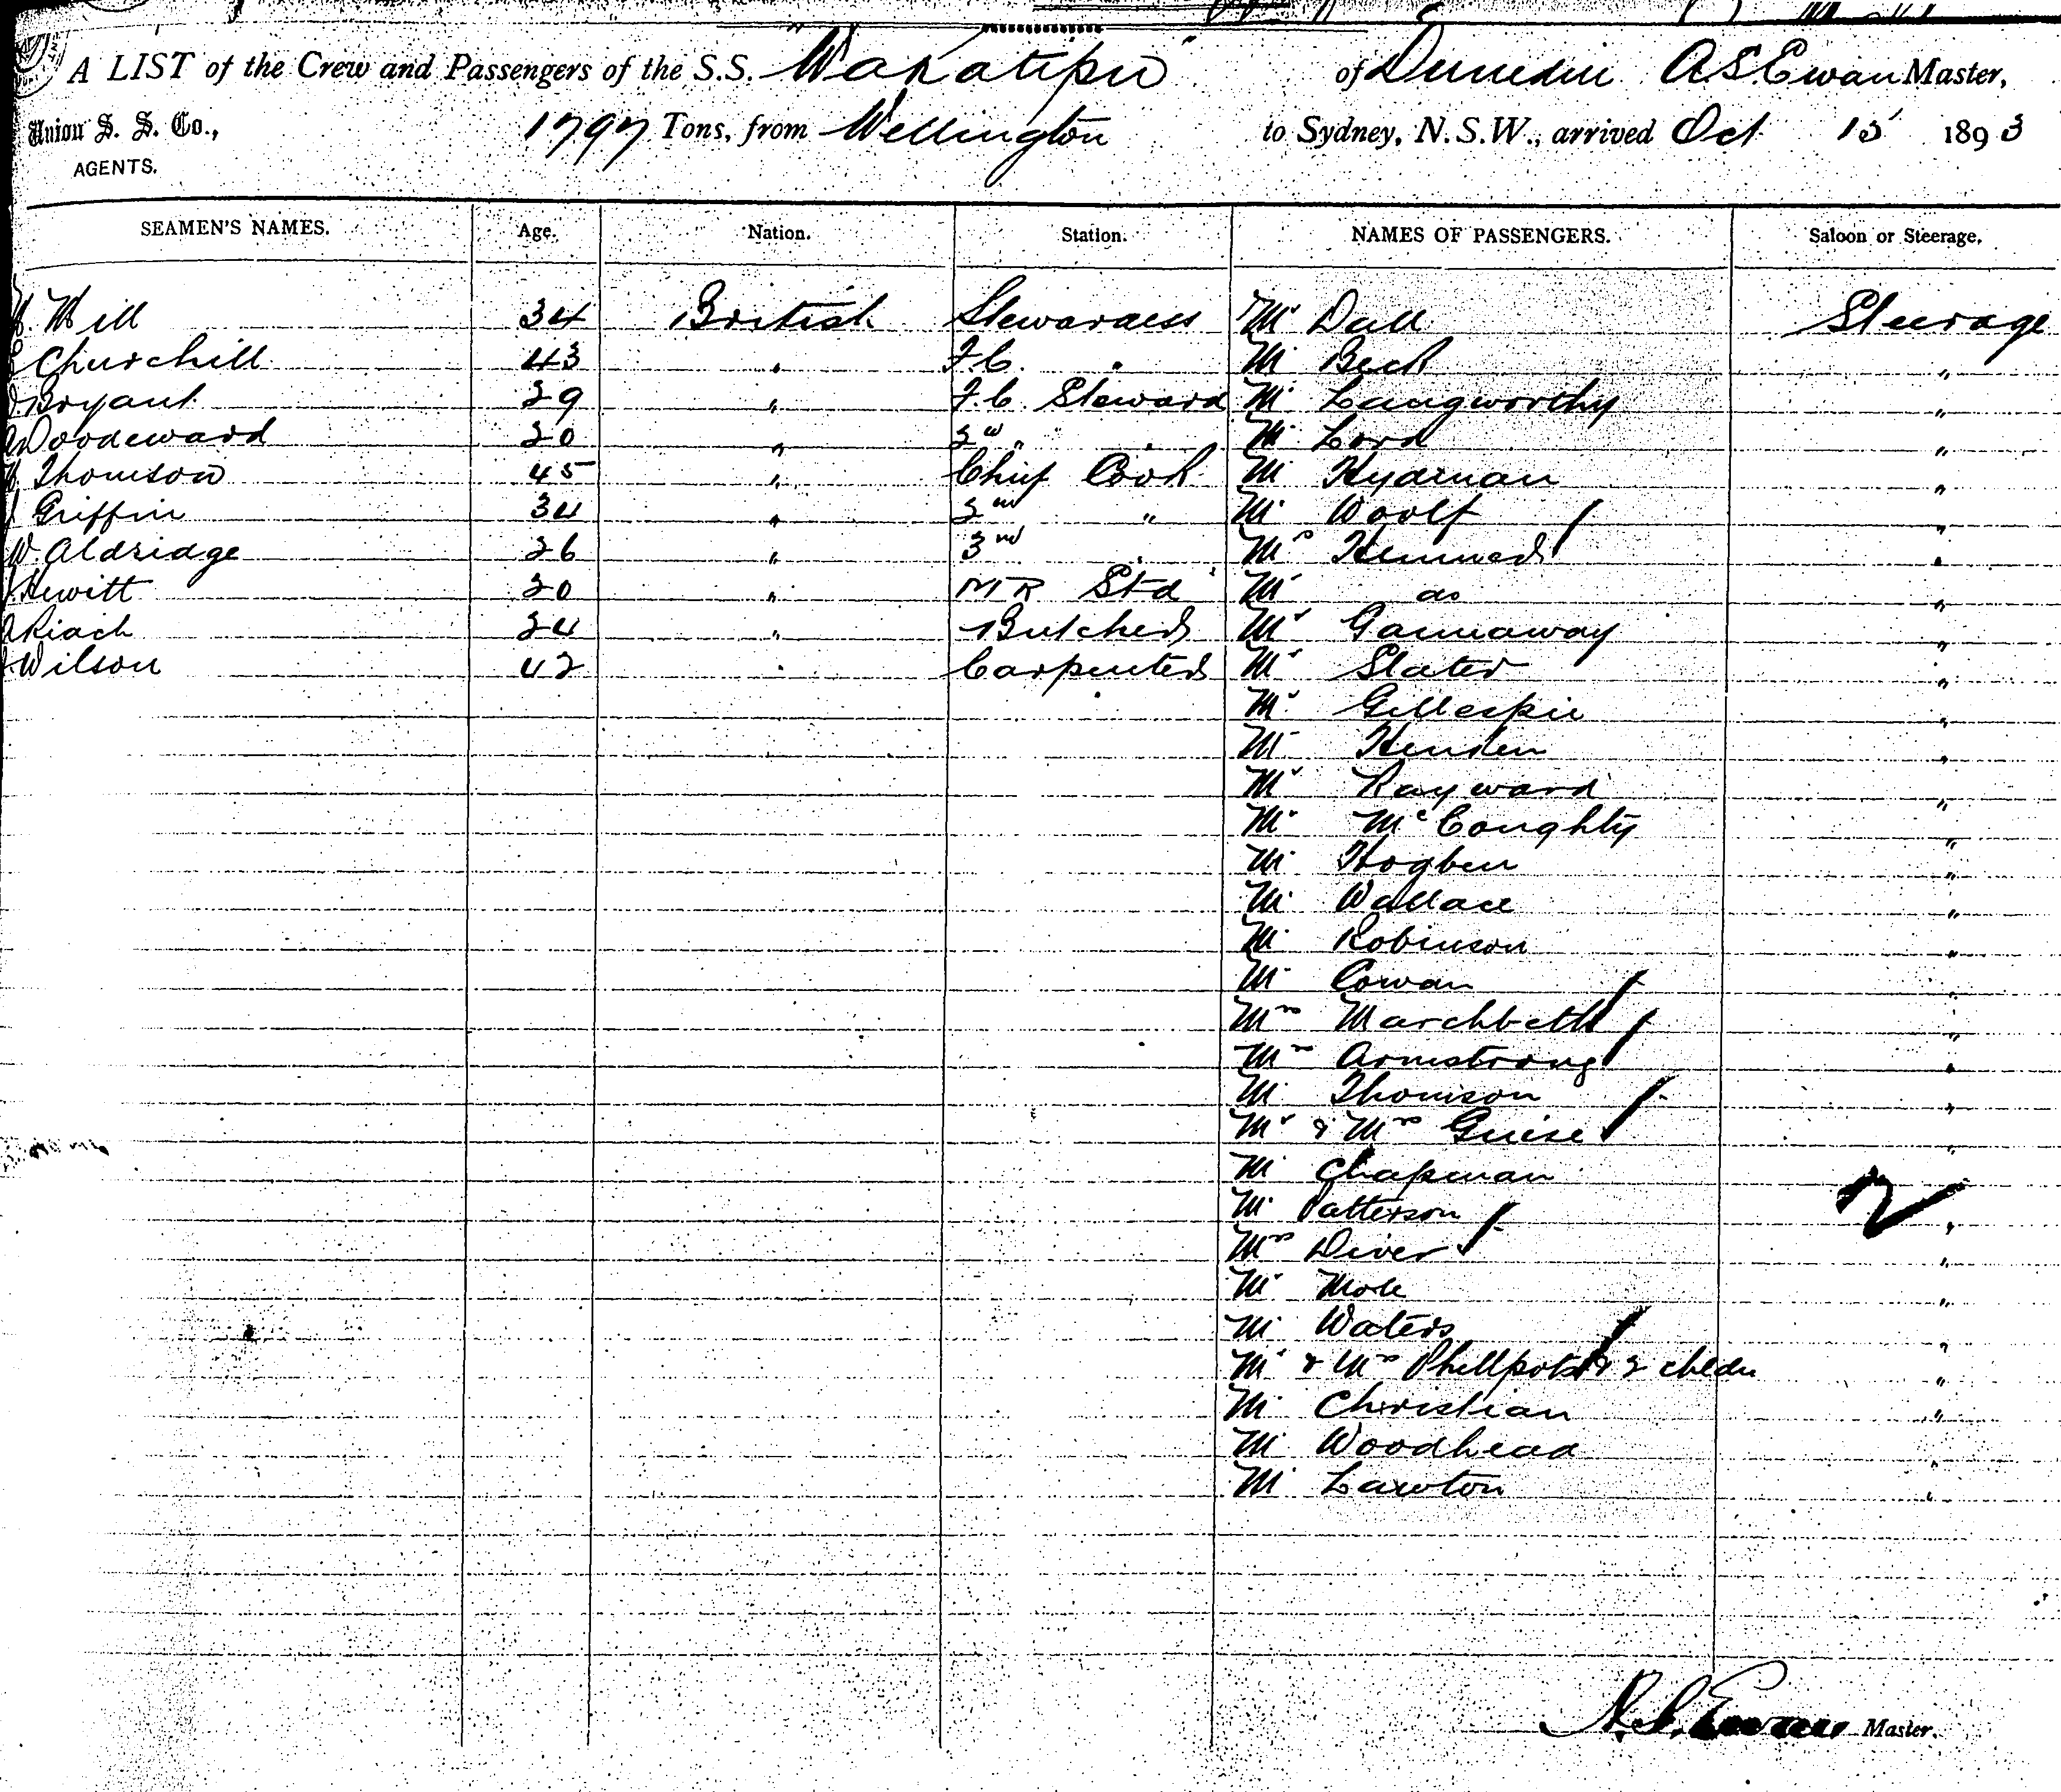 A LIST of the Crew and Passengers of the S.S. "Wakatipu" of Dunedin A S Ewan Master,
Union S. S. Co., 1797 Tons, from Wellington to Sydney, N.S.W., arrived Oct 15 1893
AGENTS.
SEAMEN'S NAMES. Age. Nation. Station. NAMES OF PASSENGERS. Saloon or Steerage.
Will 34 British Stewardess Mr Dall Steerage
Churchill 43 " F.C. " Mr Beck "
Bryant 29 " F.C. Steward Mr Langworthy "
Woodeward 20 " 2nd " " Mr Lord "
Thomson 45 " Chief Cook Mr Hydman "
Griffin 34 " 2nd " Mr Woolf "
W. Aldridge 26 " 3rd " Mrs "
Hewitt 20 " M R Std Mr do "
Riach 24 " Butcher Mr Gannaway "
Wilson 42 " Carpenter Mr Slater "
Mr Gillespie "
Mr "
Mr Rayward "
Mr McCoughty "
Mr Hogben "
Mr Wallace "
Mr Robinson "
Mr Cowan "
Mrs Marchbeth "
Mrs Armstrong "
Mr Thomson "
Mr & Mrs Guise "
Mr Chapman "
Mr Patterson "
Mrs Diver "
Mr Mole "
Mr Waters "
Mr & Mrs Phillpots & 2 childn "
Mr Christian "
Mr Woodhead "
Mr Lawton "
A.S. Ewan Master.